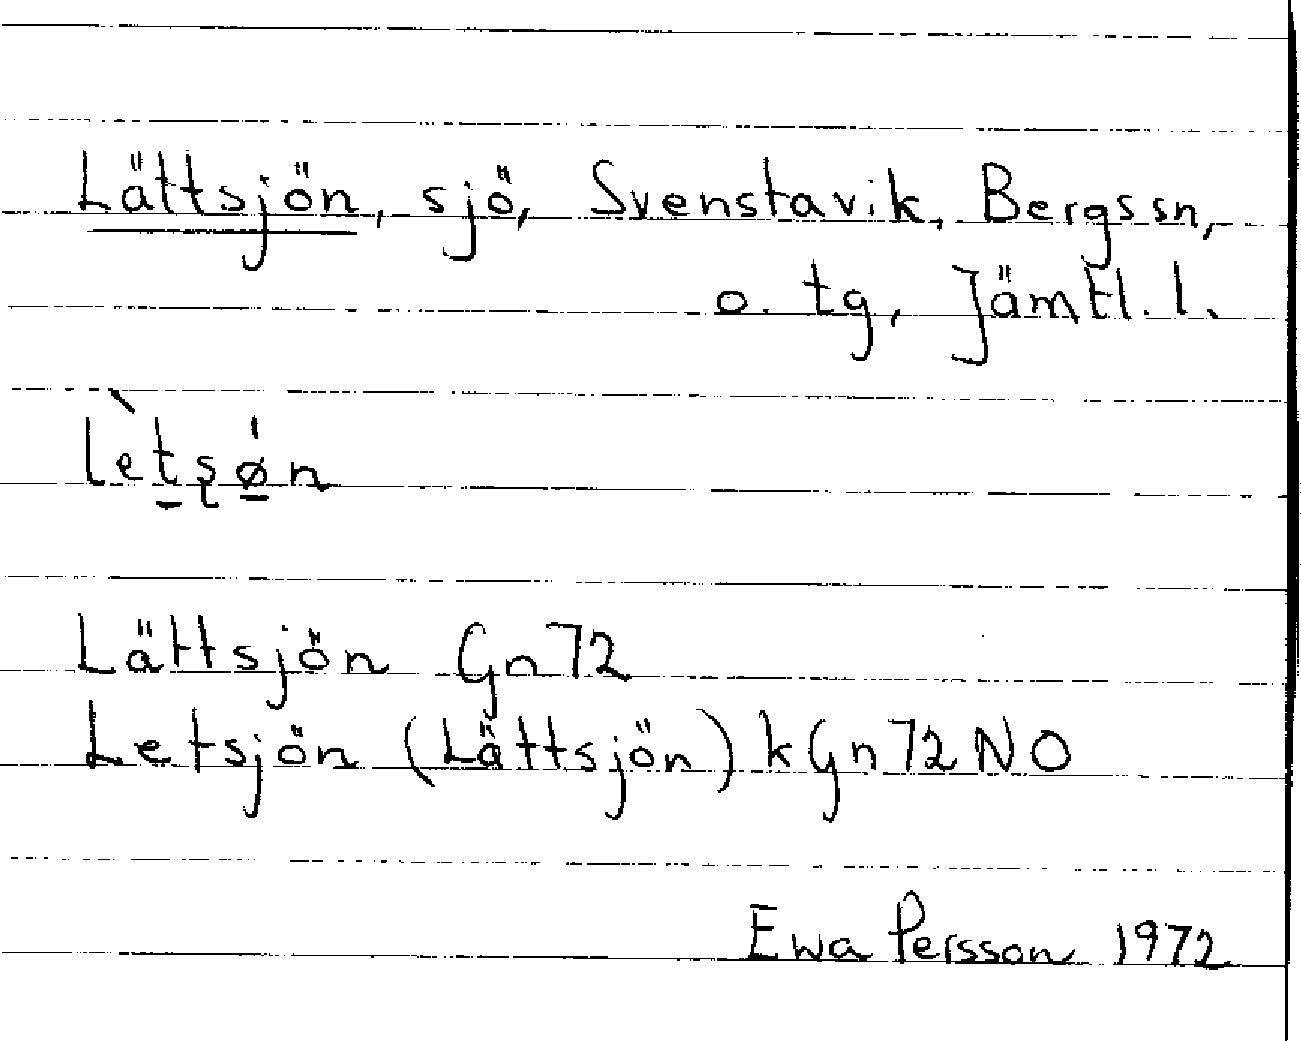 Lättsjön, sjö, Svenstavik, Bergs sn,
o. tg, Jämtl. l.
lètʂǿ̱n
Lättsjön Gn72
Letsjön (Lättsjön) kGn72NO
Ewa Persson 1972